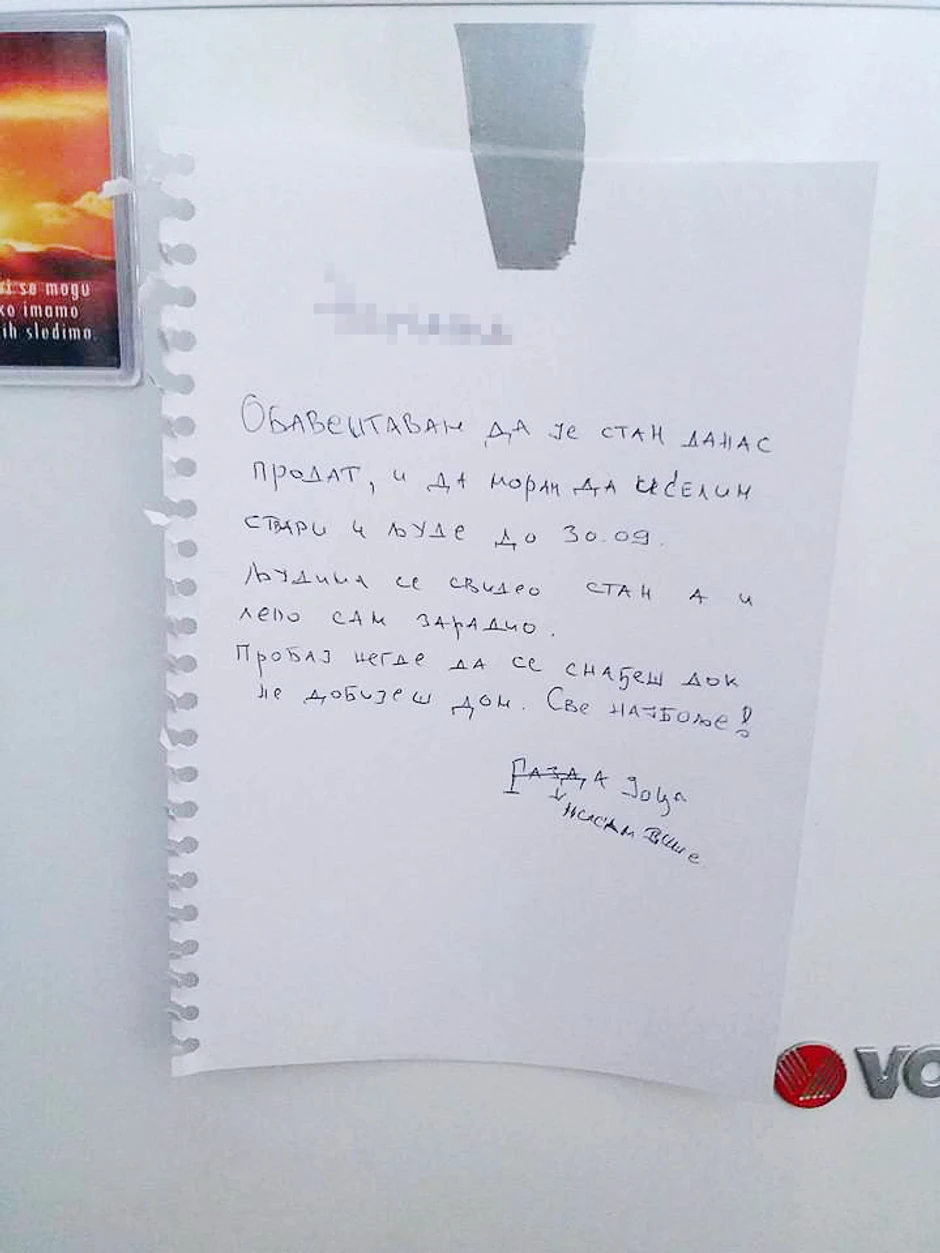 si se mogu
ko imamo
ih sledimo.
ОБАВЕШТАВАМ ДА ЈЕ СТАН ДАНАС
ПРОДАТ, И ДА МОРАМ ДА ИСЕЛИМ
СТВАРИ И ЉУДЕ ДО 30.09.
ЉУДИМА СЕ СВИДЕО СТАН А И
ЛЕПО САМ ЗАРАДИО.
ПРОБАЈ НЕГДЕ ДА СЕ СНАЂЕШ ДОК
НЕ ДОБИЈЕШ ДОМ. СВЕ НАЈБОЉЕ!
ГАЗДА
НИСАМ ВИШЕ
VO